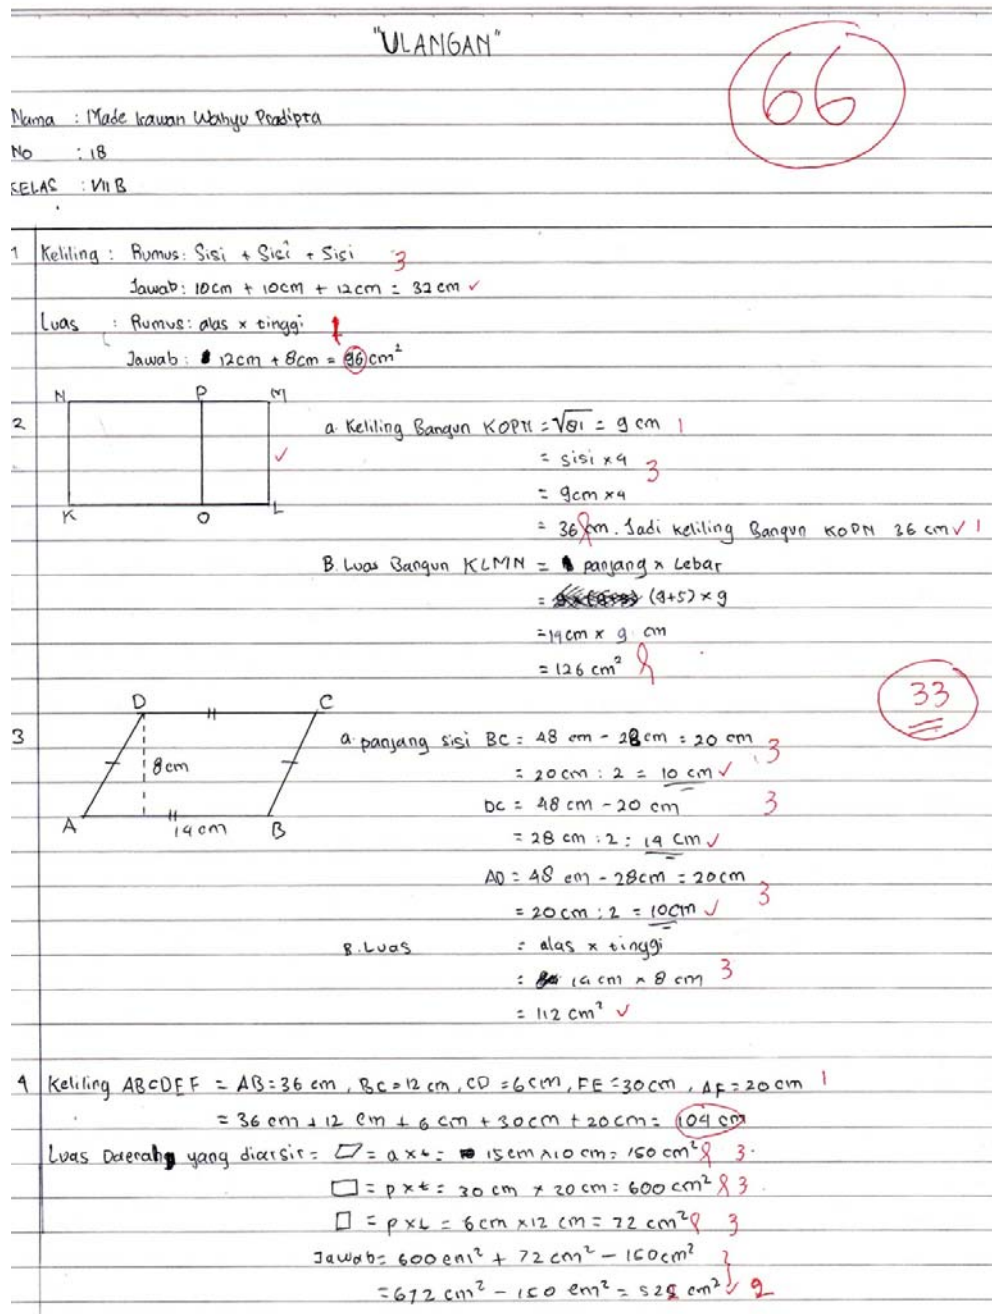 "ULANGAN"
66
Nama : Made Irawan Wahyu Pradipta
No : 18
KELAS : VII B
1 Keliling : Rumus: Sisi + Sisi + Sisi 3
Jawab: 10cm + 10cm + 12cm = 32 cm ✓
Luas : Rumus: alas x tinggi 1
Jawab: 12cm + 8cm = 96 cm²
N P M
2 a. Keliling Bangun KOPN = √81 = 9 cm 1
= sisi x 4 3
= 9cm x 4
K O L
= 36 cm. Jadi keliling Bangun KOPN 36 cm ✓ 1
B. Luas Bangun KLMN = panjang x Lebar
= (9+5) x 9
= 14 cm x 9 cm
= 126 cm²
33
D C
3 a. panjang sisi BC = 48 cm - 28 cm = 20 cm 3
8 cm
= 20 cm : 2 = 10 cm ✓
DC = 48 cm - 20 cm 3
A 14 cm B
= 28 cm : 2 = 14 cm ✓
AD = 48 cm - 28cm = 20cm 3
= 20 cm : 2 = 10cm ✓
B. Luas = alas x tinggi
= 14 cm x 8 cm 3
= 112 cm² ✓
4 Keliling ABCDEF = AB = 36 cm, BC = 12 cm, CD = 6cm, FE = 30cm, AF = 20cm 1
= 36 cm + 12 cm + 6 cm + 30cm + 20cm = 104 cm
Luas Daerah yang diarsir = ▱ = a x t = 15 cm x 10 cm = 150 cm² 3
▭ = p x t = 30 cm x 20 cm = 600 cm² 3
▯ = p x L = 6 cm x 12 cm = 72 cm² 3
Jawab = 600 cm² + 72 cm² - 150cm²
= 672 cm² - 150 cm² = cm² 2